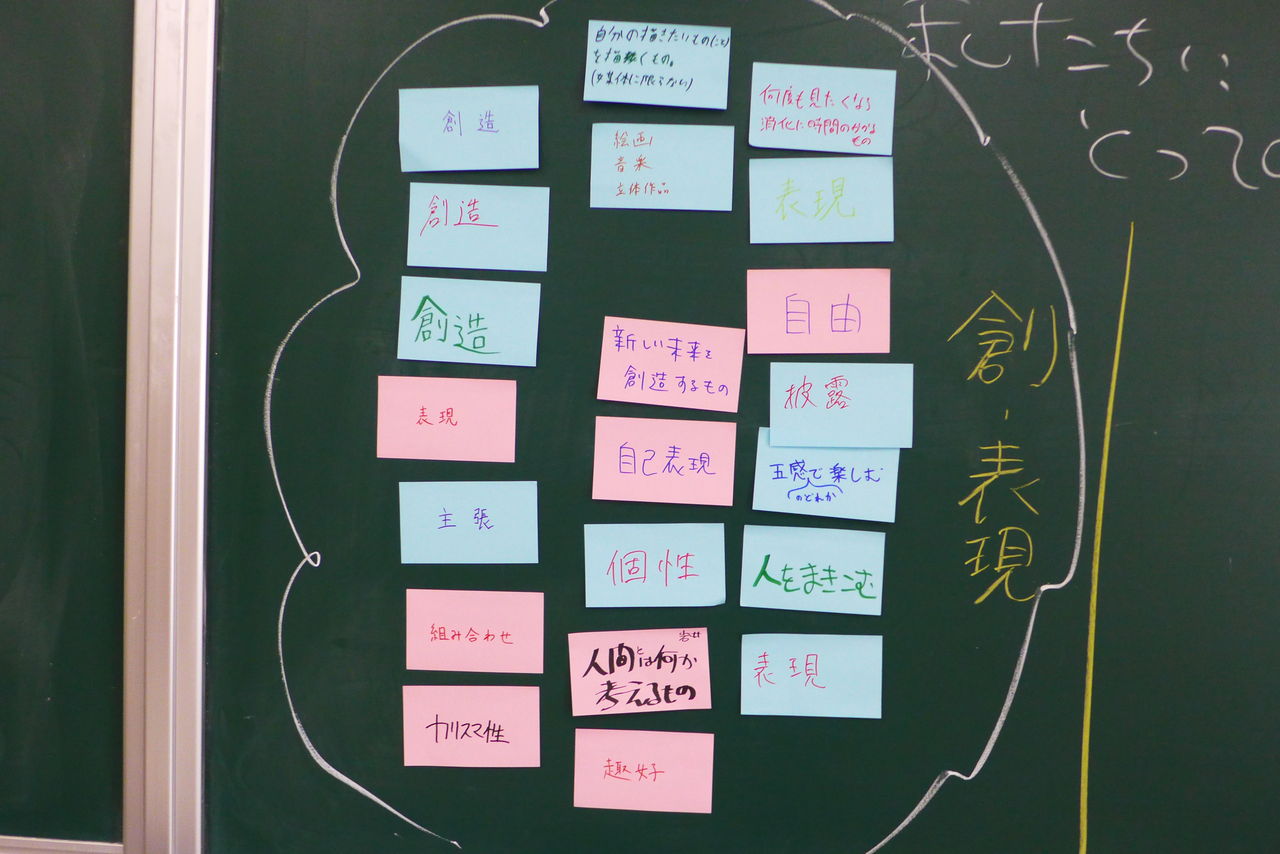 創造
創造
創造
表現
主張
組み合わせ
カリスマ性
自分の描きたいもの(こと)
を描くもの。
(媒体に限らない)
絵画
音楽
立体作品
新しい未来を
創造するもの
自己表現
個性
岩井
人間とは何か
考えるもの
趣好
何度も見たくなる
消化に時間のかかる
もの
表現
自由
披露
五感で楽しむ
のどれか
人をまきこむ
表現
創・表現
たちに
とって